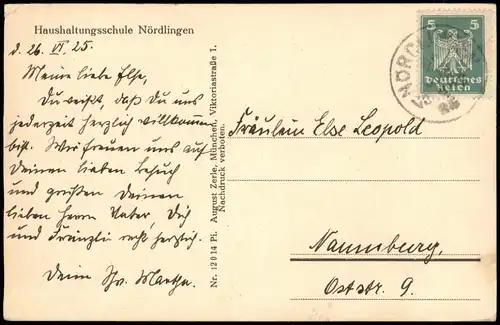 Haushaltungsschule Nördlingen
d. 26. VI. 25.
Meine liebe Else,
Du weißt, daß Du uns
jederzeit herzlich willkommen
bist. Wir freuen uns auf
Deinen lieben Besuch
und grüßen Deinen
lieben Herrn Vater, Dich
und recht herzlich.
Deine Schw. Martha.
Nr. 12014 Pi. August Zerle, München, Viktoriastraße 1.
Nachdruck verboten.
5 5
Deutsches
Reich
NÖRD
Fräulein Else Leopold
Naumburg,
Oststr. 9.